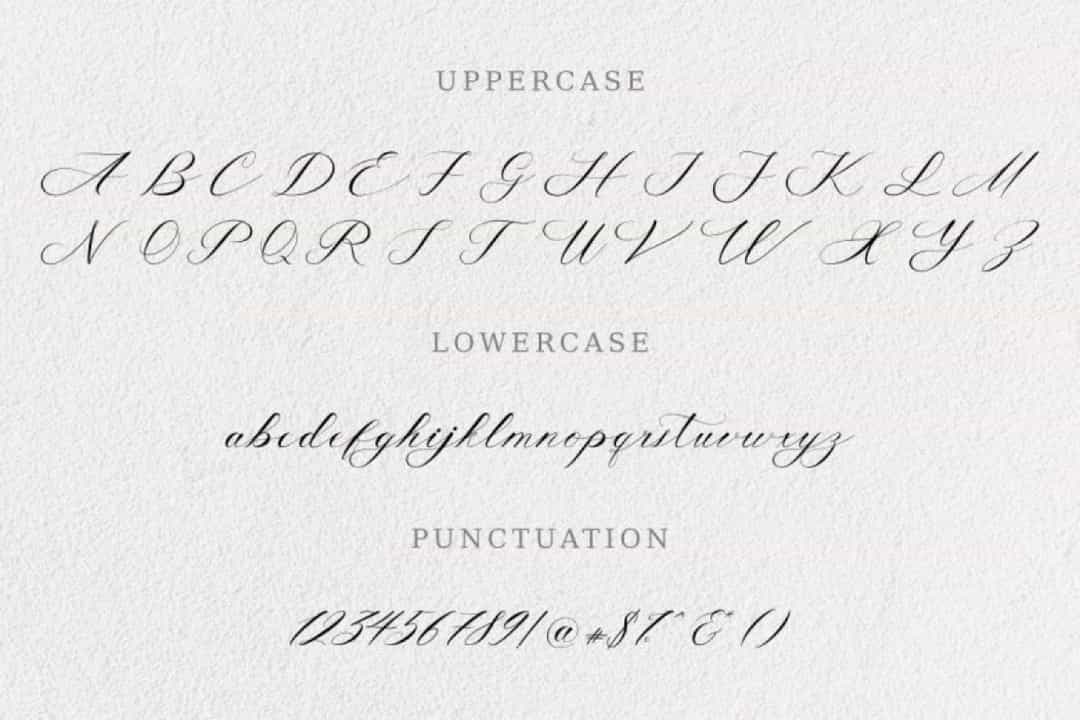 UPPERCASE
A B C D E F G H I J K L M
N O P Q R S T U V W X Y Z
LOWERCASE
abcdefghijklmnopqrstuvwxyz
PUNCTUATION
123456789!@#$%^&*()